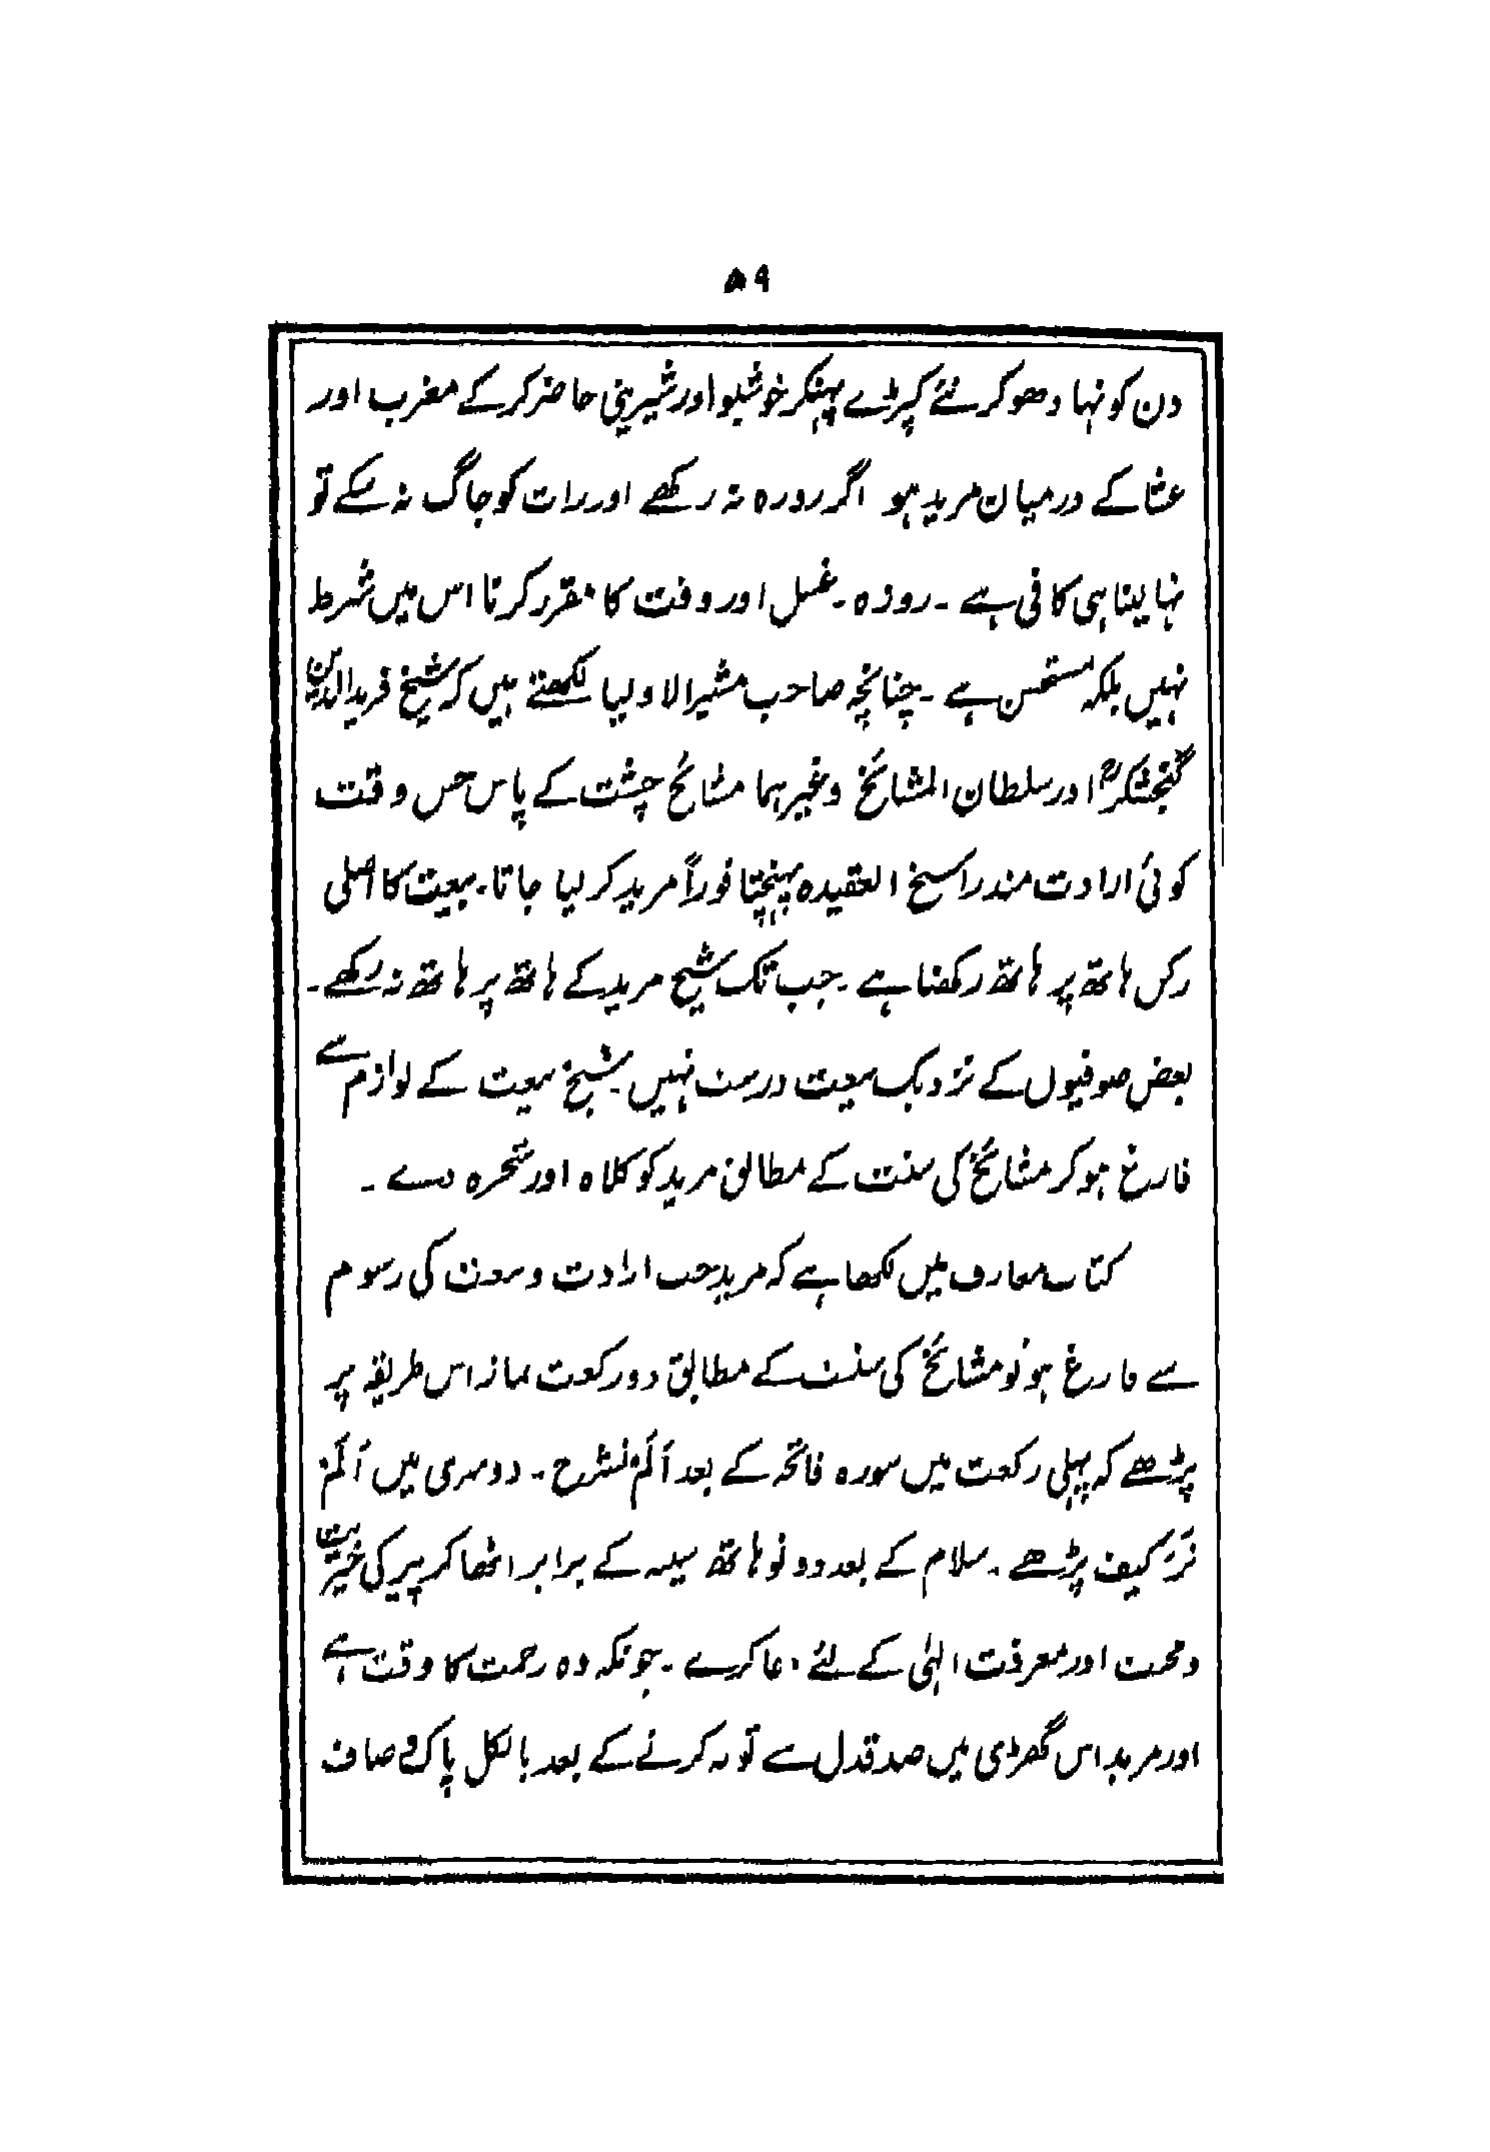 ۵۹
دن کو نہا دھو کر نئے کپڑے پہنکر خوشبو اور شیرینی حاضر کر کے مغرب اور
عشا کے درمیان مرید ہو اگر روزہ نہ رکھے اور رات کو جاگ نہ سکے تو
نہا لینا ہی کافی ہے ۔ روزہ ۔ غسل اور وقت کا مقرر کرنا اس میں شرط
نہیں بلکہ مستحسن ہے ۔ چنانچہ صاحب مشیر الاولیا لکھتے ہیں کہ شیخ فرید الدین
گنجشکرؒ اور سلطان المشائخ وغیرہما مشائخ چشت کے پاس جس وقت
کوئی ارادت مند راسخ العقیدہ پہنچتا فوراً مرید کر لیا جاتا ۔ بیعت کا اصلی
رکن ہاتھ پر ہاتھ رکھنا ہے ۔ جب تک شیخ مرید کے ہاتھ پر ہاتھ نہ رکھے ۔
بعض صوفیوں کے نزدیک بیعت درست نہیں ۔ شیخ بیعت کے لوازم سے
فارغ ہو کر مشائخ کی سنت کے مطابق مرید کو کلاہ اور شجرہ دے ۔
کتاب معارف میں لکھا ہے کہ مرید جب ارادت و بیعت کی رسوم
سے فارغ ہو تو مشائخ کی سنت کے مطابق دو رکعت نماز اس طریقہ پر
پڑھے کہ پہلی رکعت میں سورہ فاتحہ کے بعد اَلَمْ نشرح ۔ دوسری میں اَلَمْ
تَرَ کیف پڑھے ۔ سلام کے بعد دونو ہاتھ سینہ کے برابر اٹھا کر پیر کی خیریت
و محبت اور معرفت الہٰی کے لئے دعا کرے ۔ چونکہ وہ رحمت کا وقت ہے
اور مرید اس گھڑی میں صدقدل سے توبہ کرنے کے بعد بالکل پاک و صاف